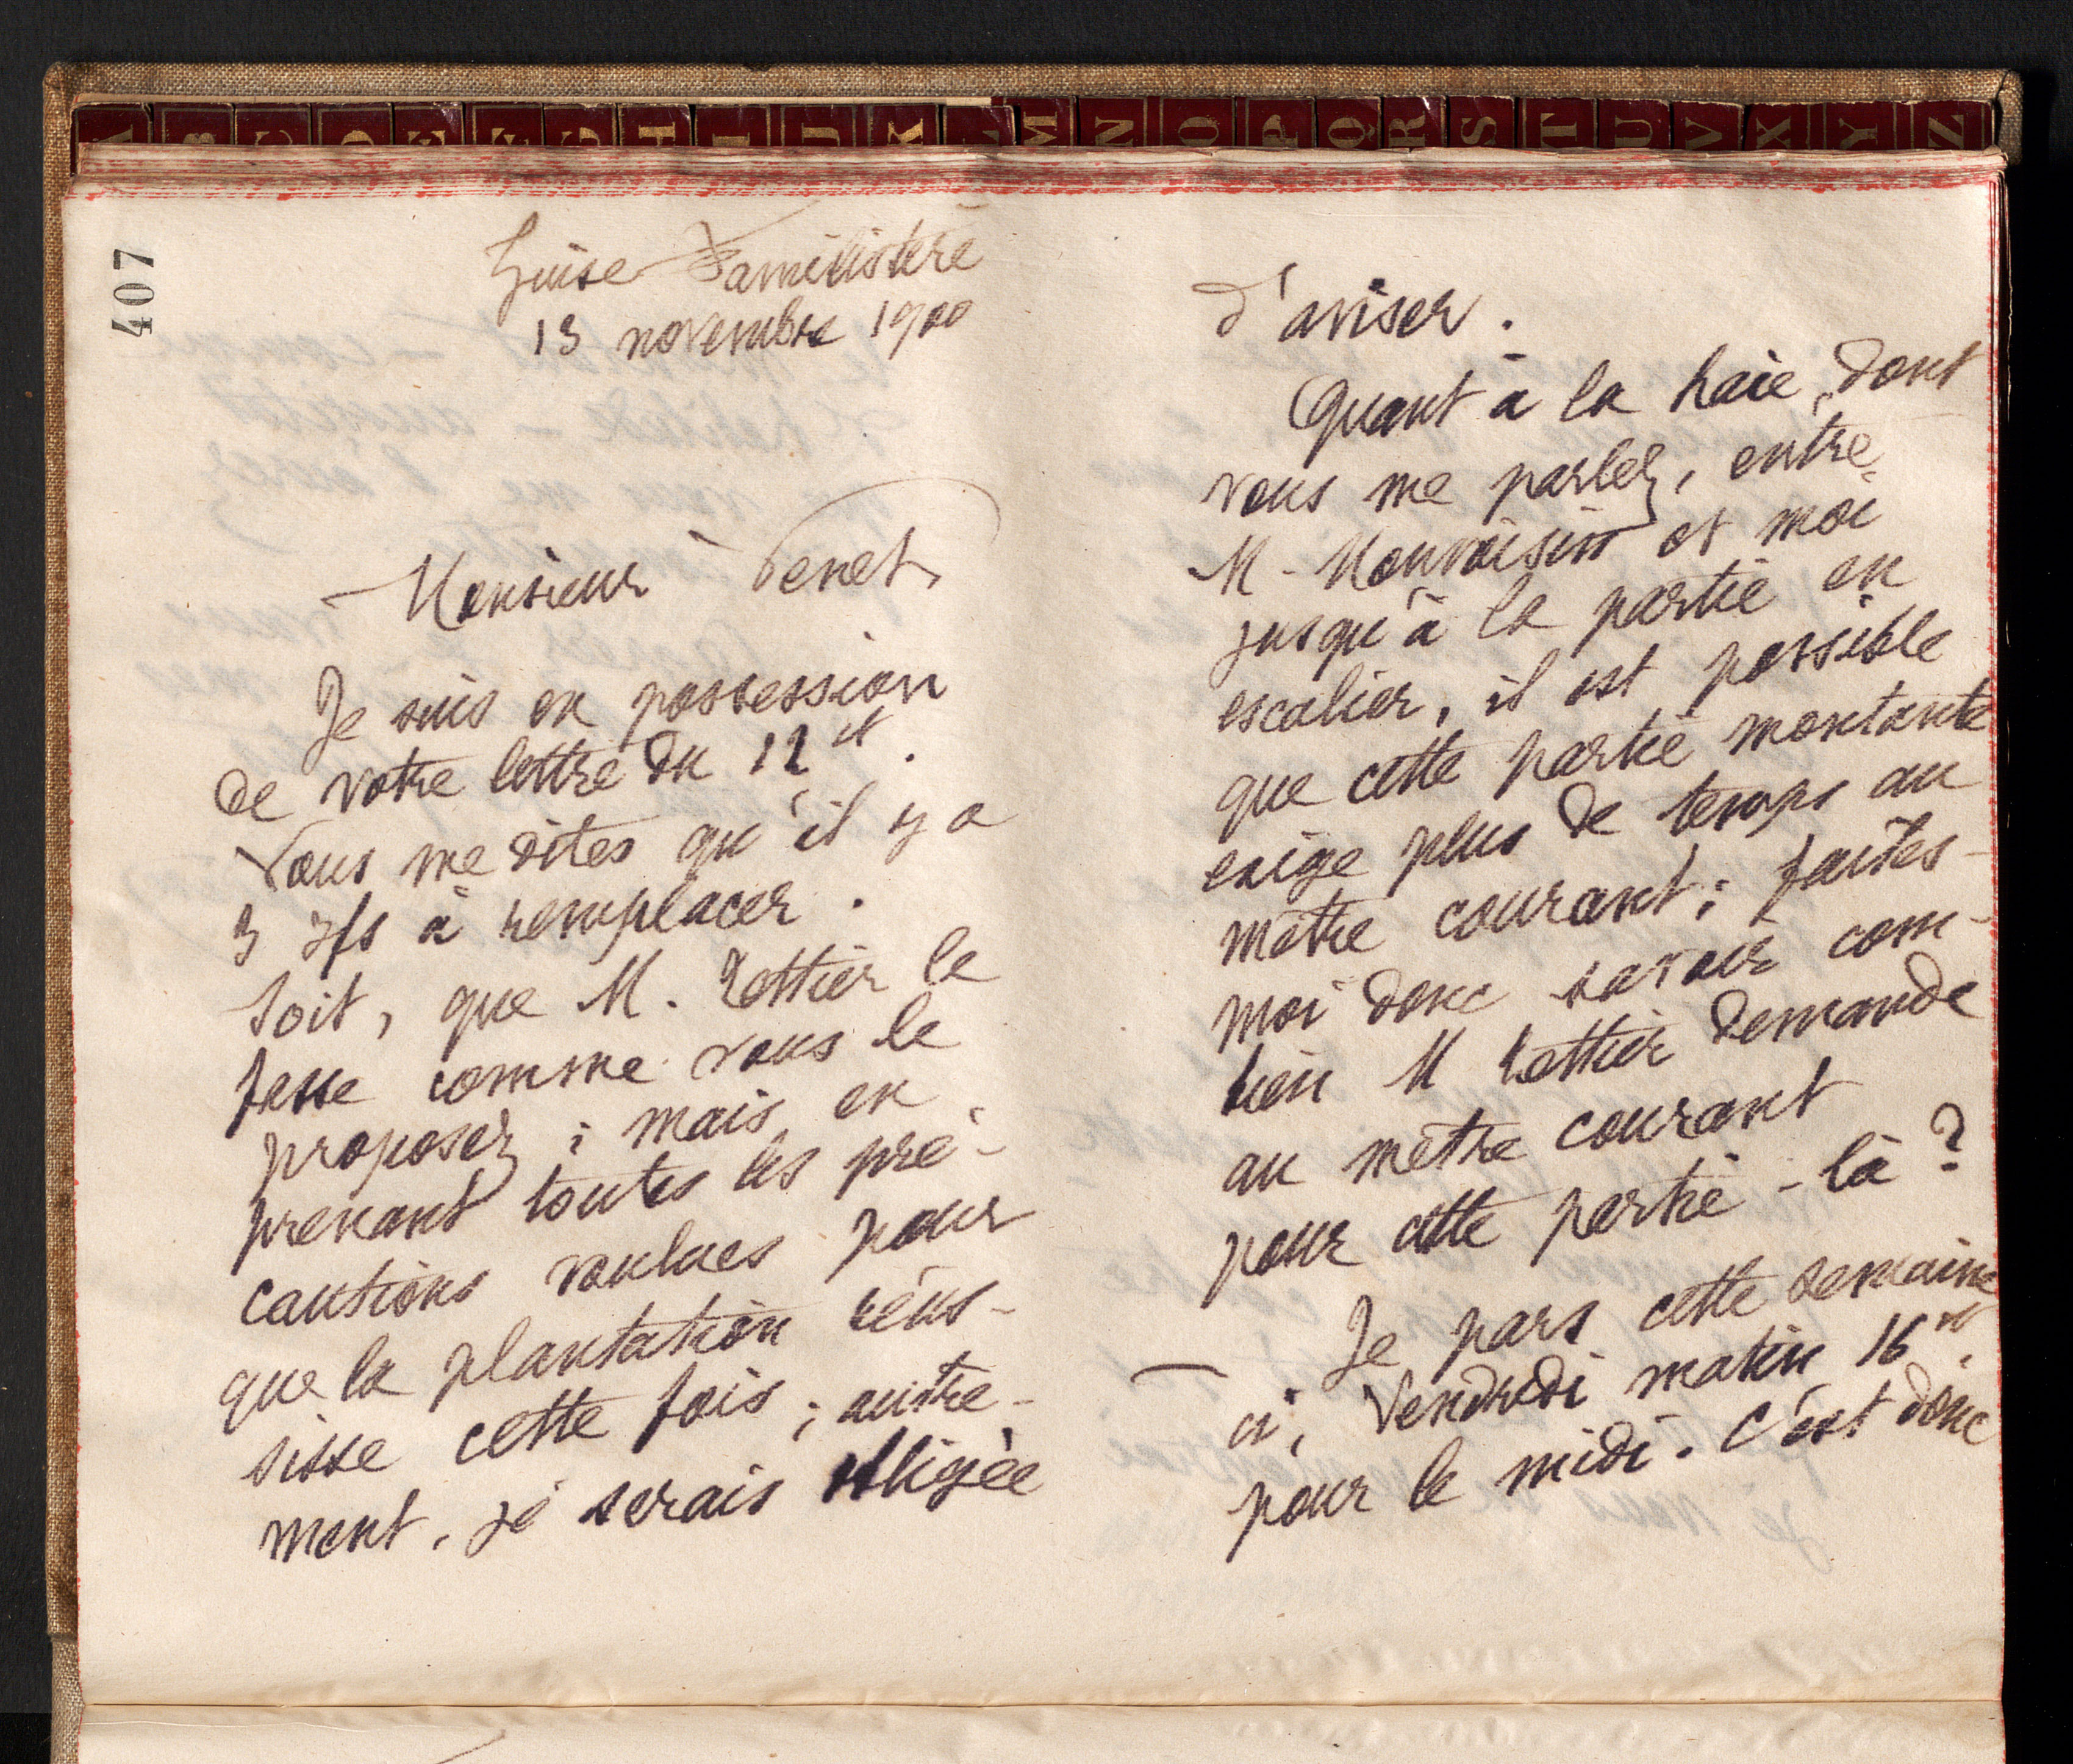 A B C D E F G H I J K L M N O P Q R S T U V X Y Z
407
Guise Familistère
13 novembre 1900
Monsieur Penet
Je suis en possession
de votre lettre du 12 ct.
Vous me dites qu'il y a
3 ifs à remplacer.
Soit, que M. Lettier le
fasse comme vous le
proposez ; mais en
prenant toutes les pré-
cautions voulues pour
que la plantation réus-
sisse cette fois ; autre-
ment, je serais obligée
d'aviser.
Quant à la haie, dont
vous me parlez, entre
M. Monvoisin et moi
jusqu'à la partie en
escalier, il est possible
que cette partie montante
exige plus de temps au
mètre courant ; faites-
moi donc savoir com-
bien M Lettier demande
au mètre courant
pour cette partie-là ?
Je pars cette semaine
ci, Vendredi matin 16 ct,
pour le midi. C'est donc